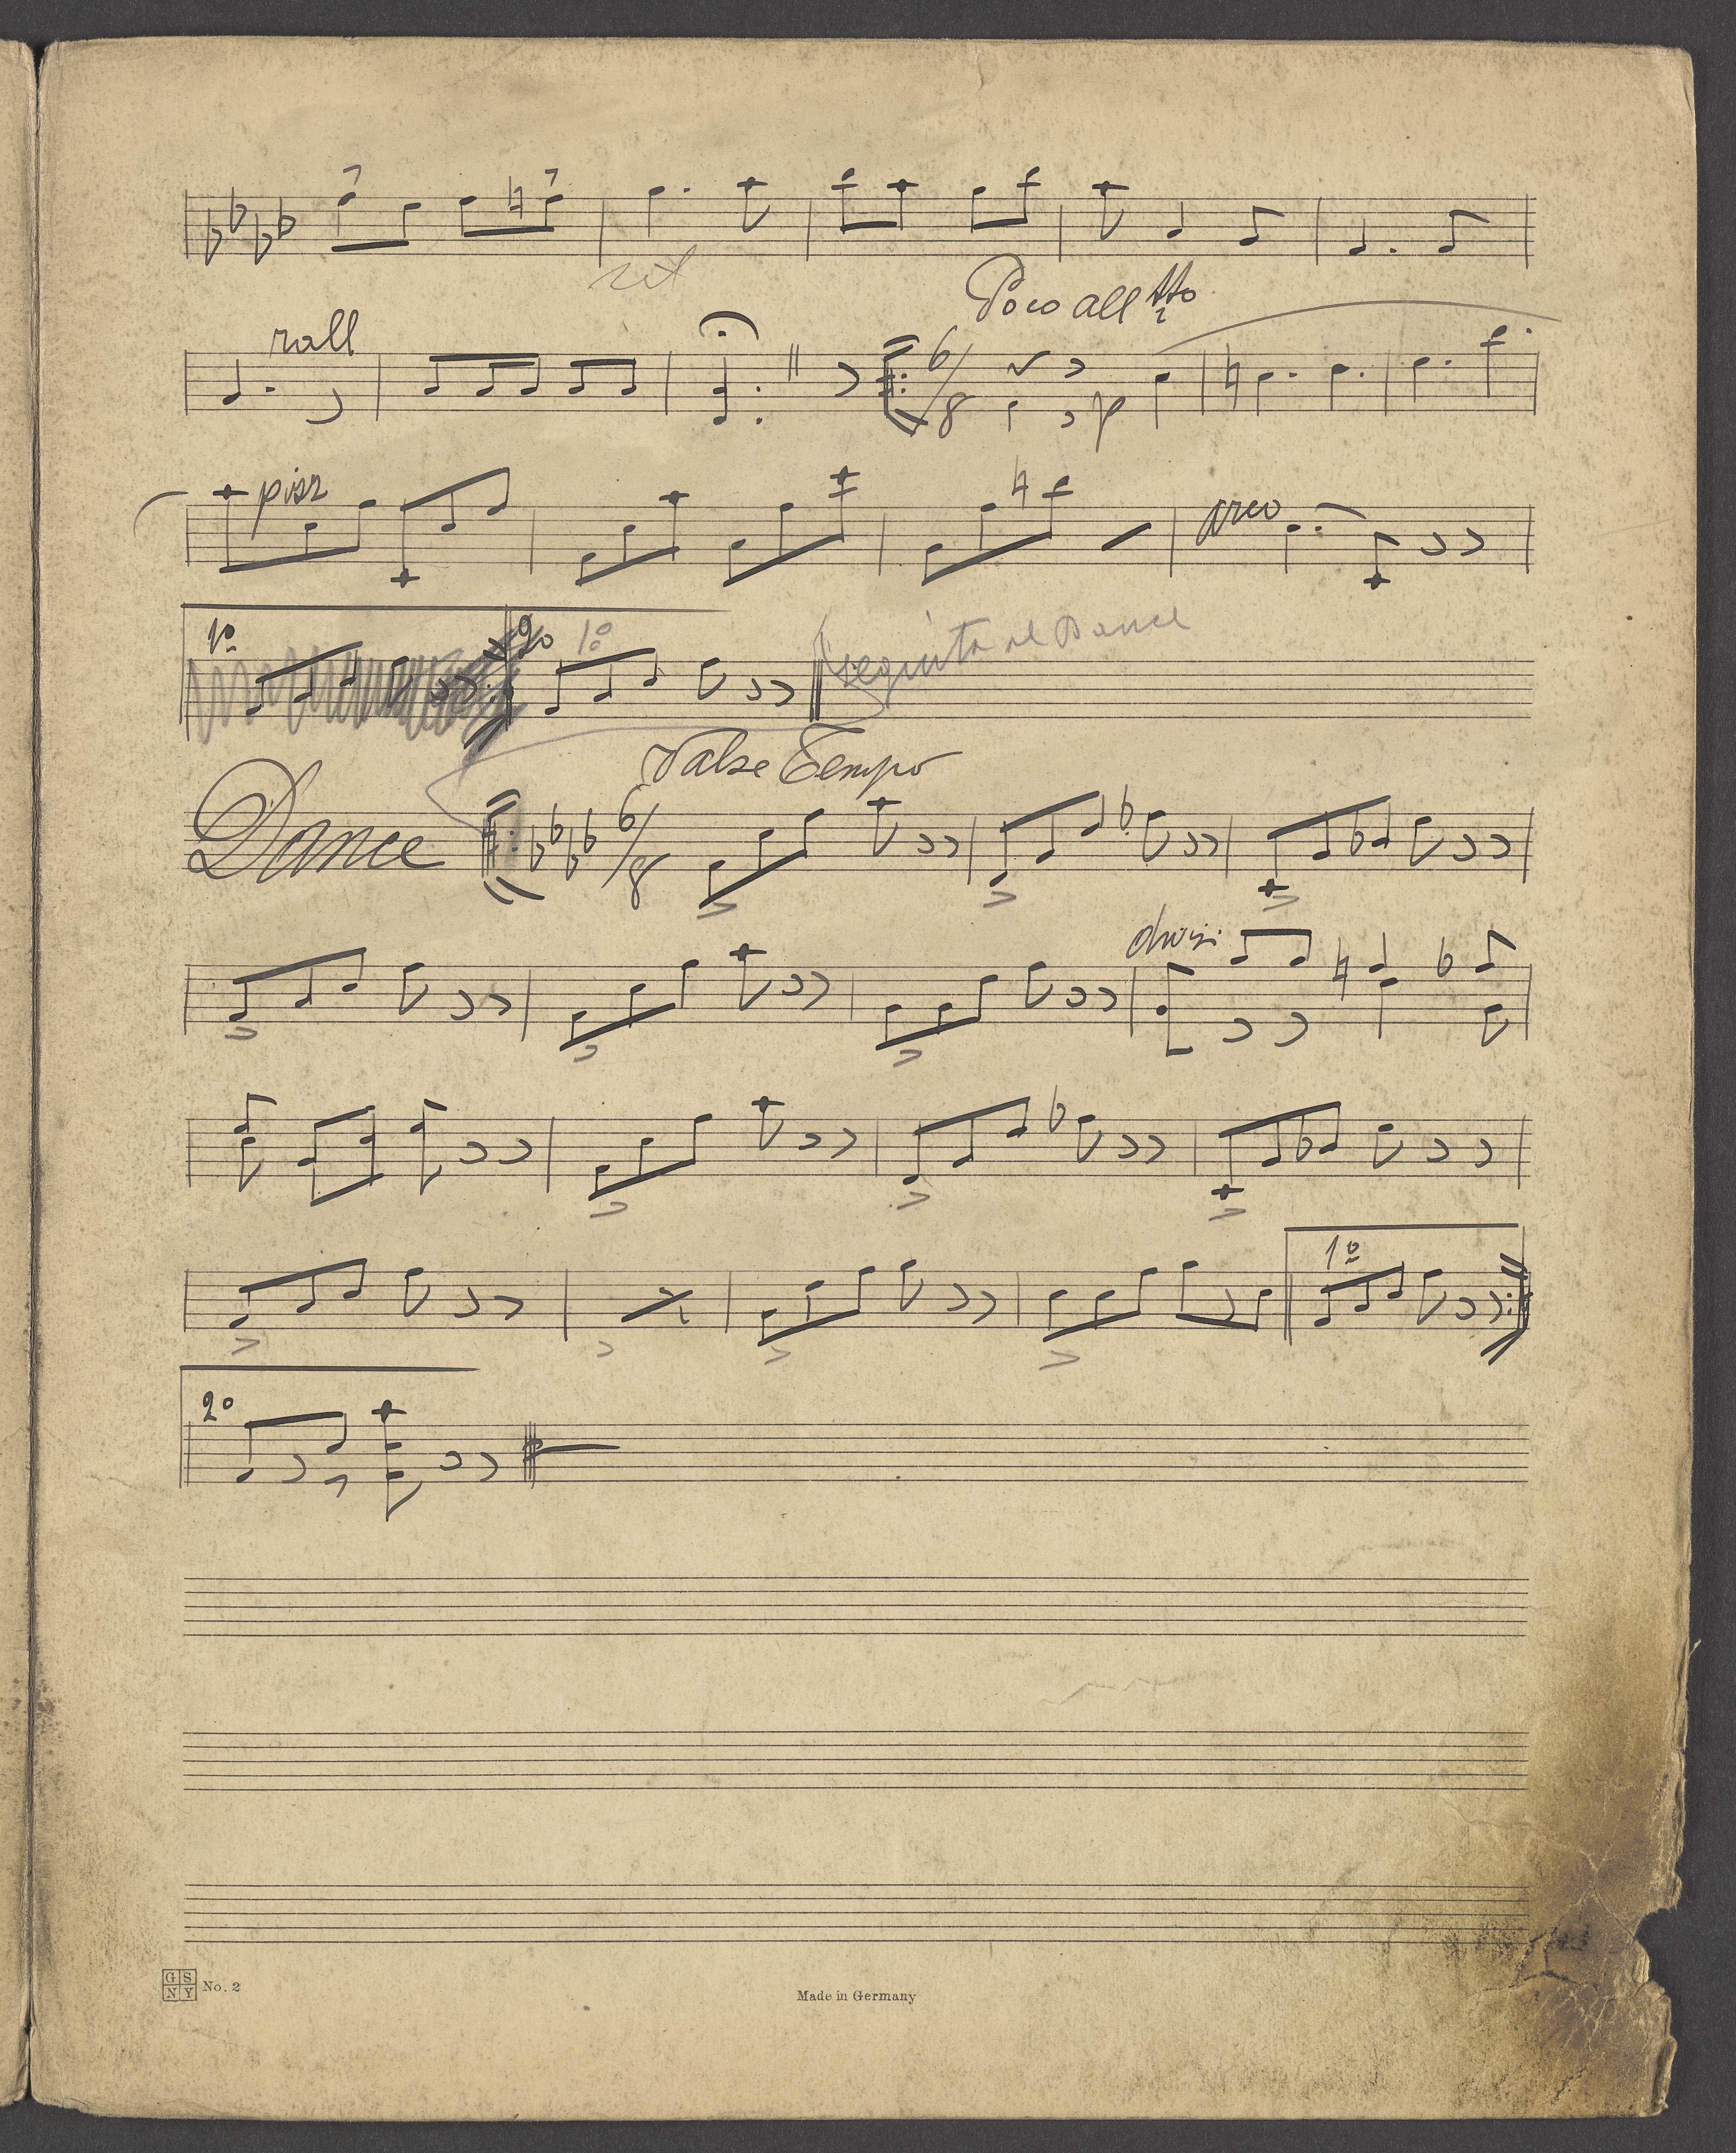 rit
Poco all tto
rall
6/8
p
pizz
arco
1o
2o 1o
seguita al Dance
Valse Tempo
Dance 6/8
divisi
1o
2o
GS
NY No. 2
Made in Germany